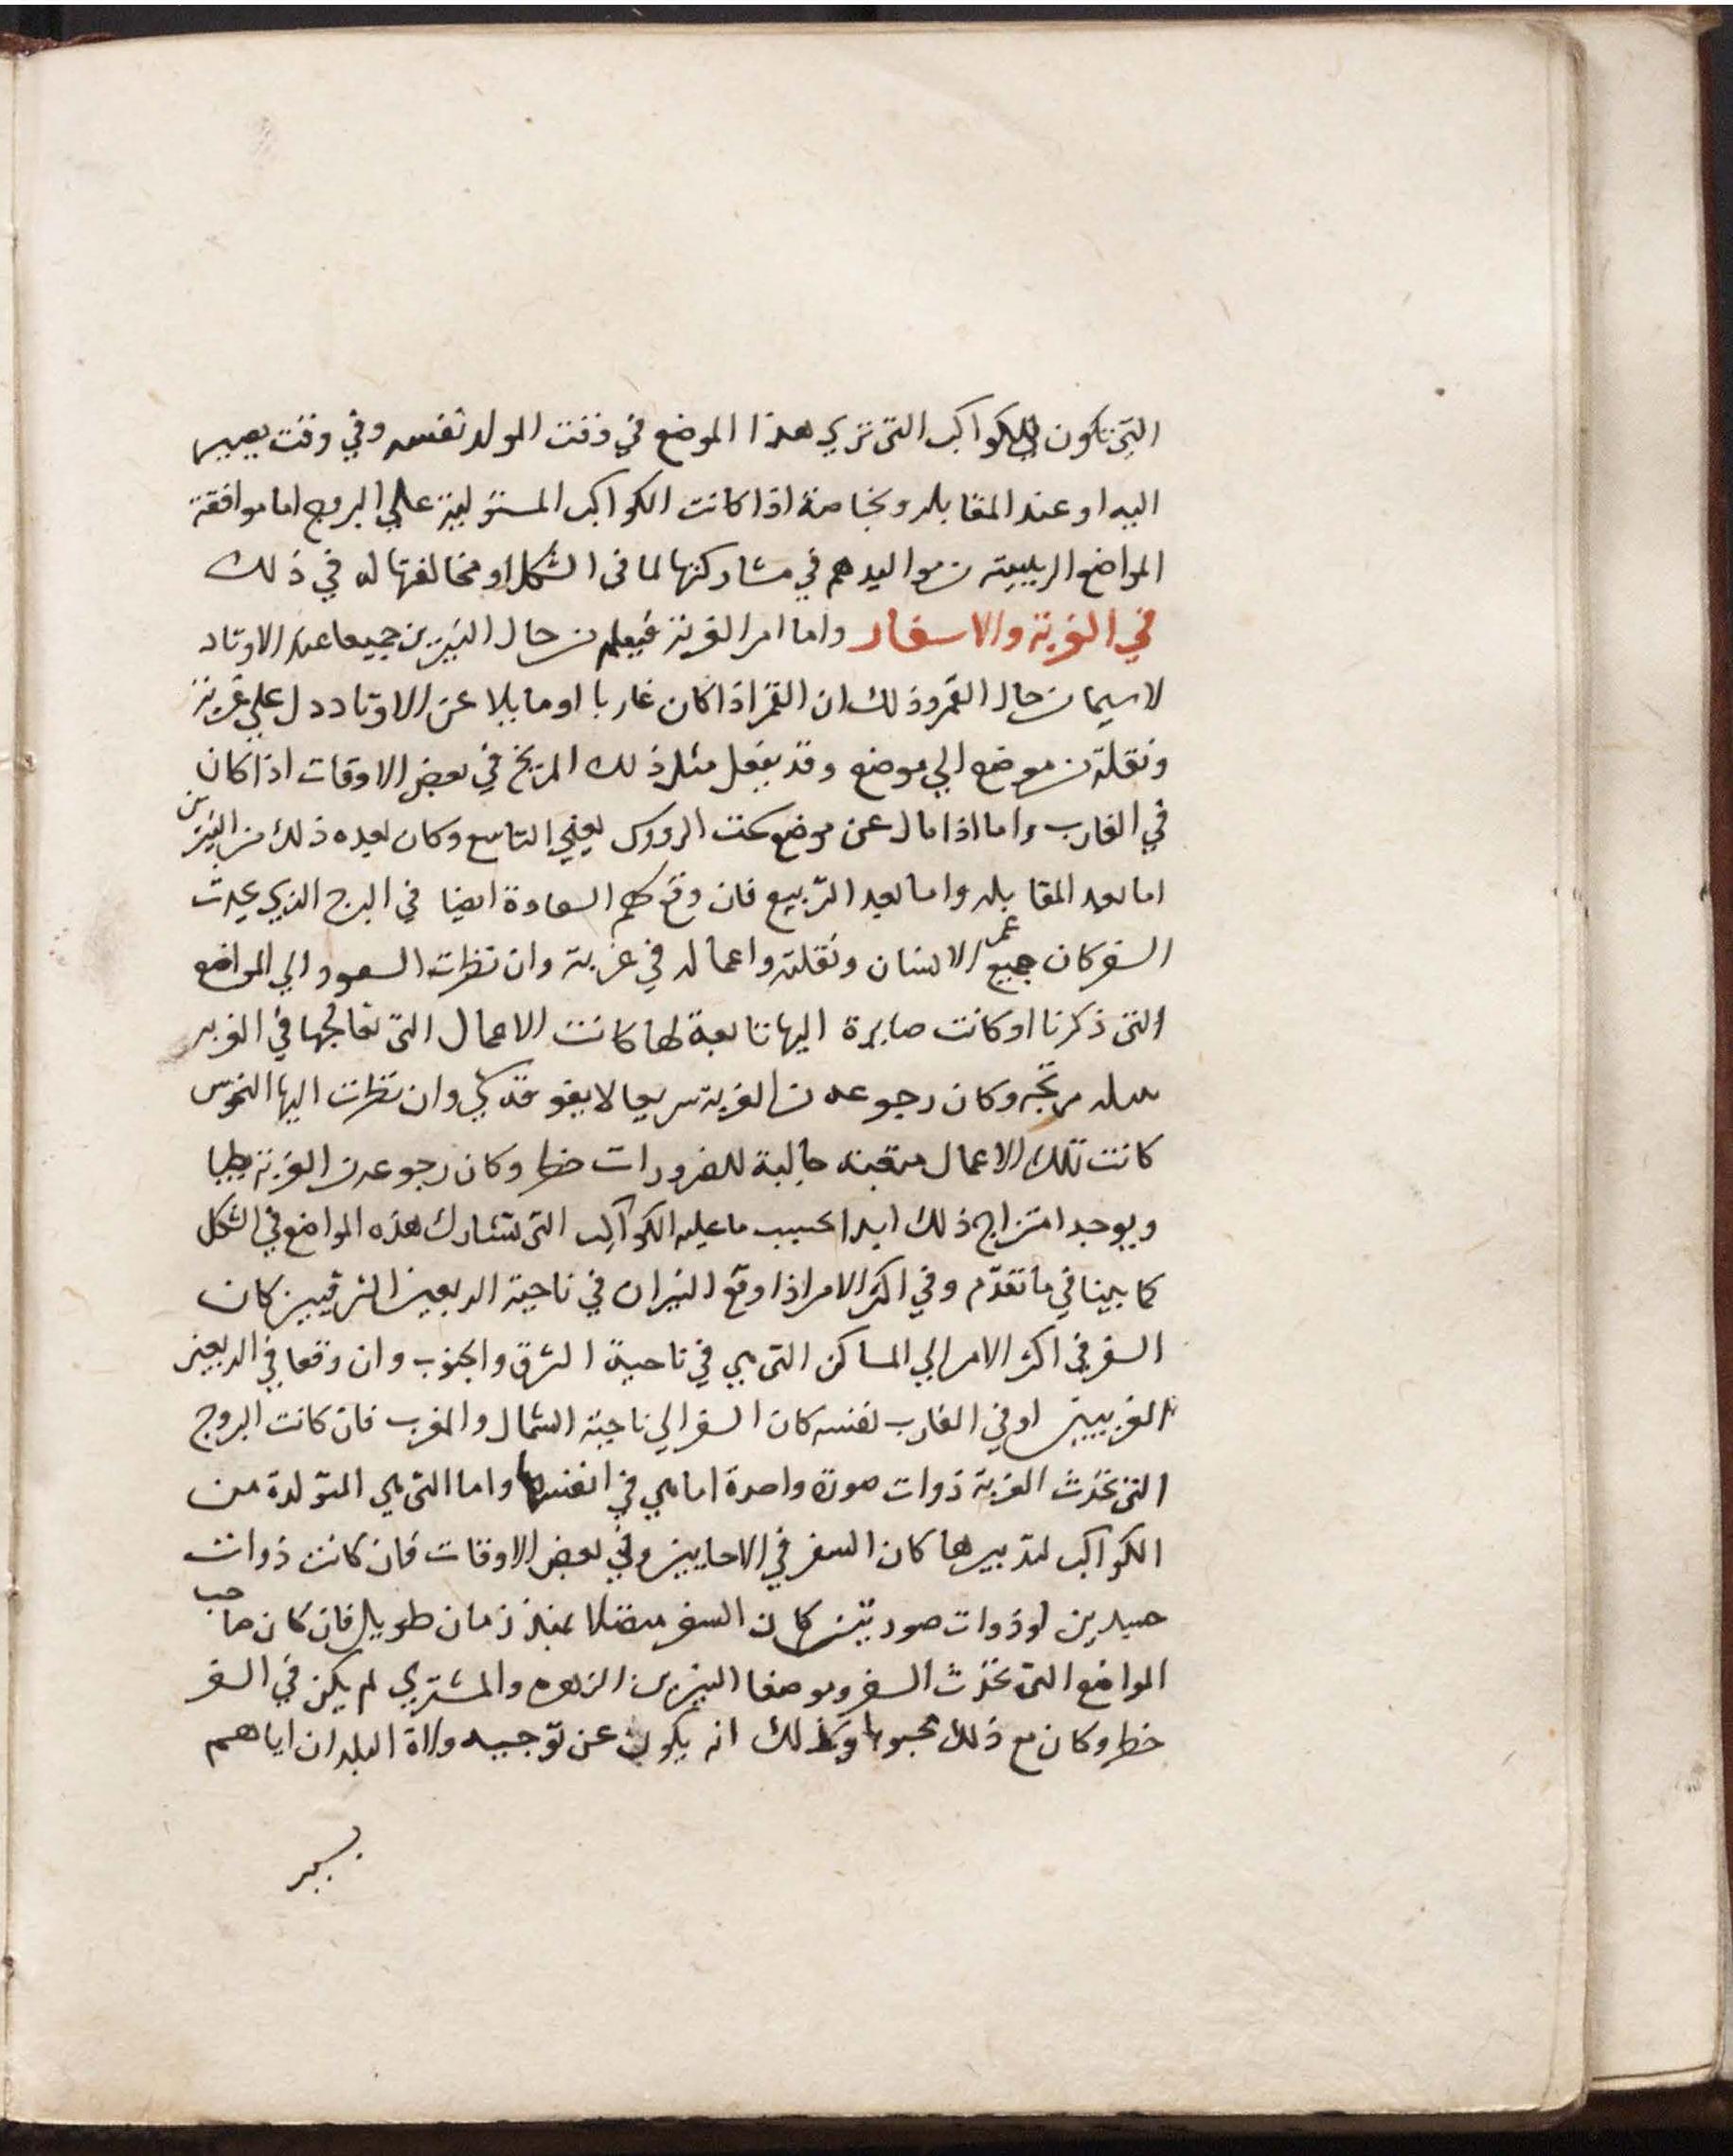 التي تكون للكواكب التي تري هذا الموضع في وقت المولد نفسه وفي وقت يصير
اليه او عند المقابله وبخاصة اذا كانت الكواكب المستولية علي البروج اما موافقة
المواضع الرييسة من مواليدهم في مشاركتها لما في الشكل او مخالفتها له في ذلك
في الغربة والاسفار واما امر الغربة فيعلم من حال النيرين جميعا عند الاوتاد
لاسيما من حال القمر وذلك ان القمر اذا كان غاربا او مايلا عن الاوتاد دل علي غربة
ونقلة من موضع الي موضع وقد يفعل مثل ذلك المريخ في بعض الاوقات اذا كان
في الغارب واما اذا مال عن موضع سمت الرووس يعني التاسع وكان بعده ذلك من النيرين
اما بعد المقابله واما بعد التربيع فان وقع سهم السعادة ايضا في البرج الذي يحدث
السفر كان جميع عمر الانسان ونقلته واعماله في غربة وان نظرت السعود الي المواضع
التي ذكرنا او كانت صايرة اليها تابعة لها كانت الاعمال التي تعالجها في الغربه
مربحه وكان رجوعه من الغربة سريعا لا يعوقه شي وان نظرت اليها النحوس
كانت تلك الاعمال متعبه جالبة للضرورات خطرا وكان رجوعه من الغربة بطيا
ويوجد امتزاج ذلك ابدا بحسب ما عليه الكواكب التي تشارك هذه المواضع في الشكل
كما بينا في ما تقدّم وفي اكثر الامر اذا وقع النيران في ناحية الربعين الشرقيين كان
السفر في اكثر الامر الي المساكن التي هي في ناحية الشرق والجنوب وان وقعا في الربعين
الغربيين او في الغارب نفسه كان السفر الي ناحية الشمال والمغرب فان كانت البروج
التي تحدث الغربة ذوات صورة واحدة اما هي في انفسها واما التي هي المتولدة من
الكواكب لتدبيرها كان السفر في الاحايين وفي بعض الاوقات فان كانت ذوات
جسدين او ذوات صورتين كان السفر متصلا منذ زمان طويل فان كان صاحب
المواضع التي تحدث السفر وموضعا النيرين الزهره والمشتري لم يكن في السفر
خطر وكان مع ذلك محبوبا وكذلك انه يكون عن توجيه ولاة البلدان اياهم